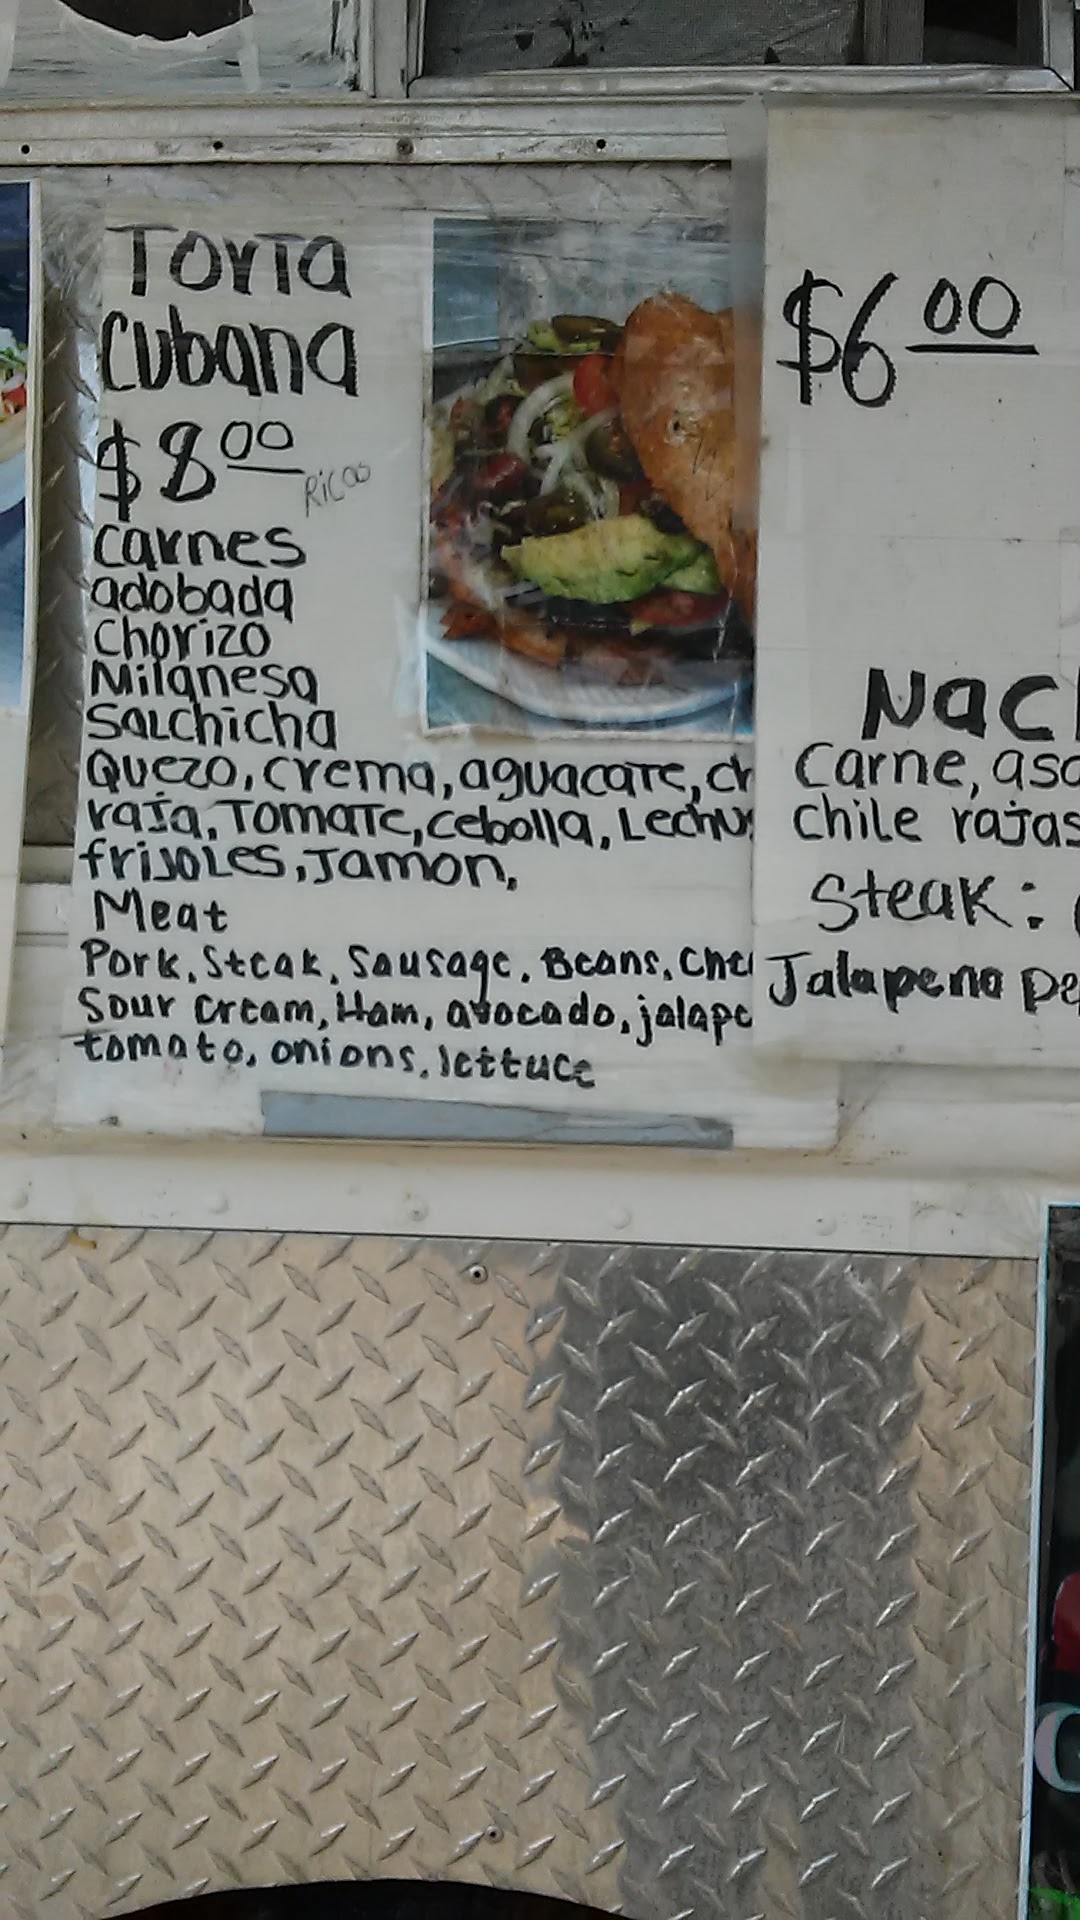 Torta
Cubana
$8.00
Ricos
Carnes
adobada
Chorizo
Milanesa
Salchicha
Quezo, crema, aguacate, ch
raja, Tomate, cebolla, Lechu
frijoles, Jamon,
Meat
Pork, Steak, Sausage, Beans, Che
Sour Cream, Ham, avocado, jalape
tomato, onions, lettuce
$6.00
Nac
Carne, asa
chile rajas
Steak:
Jalapeno pe